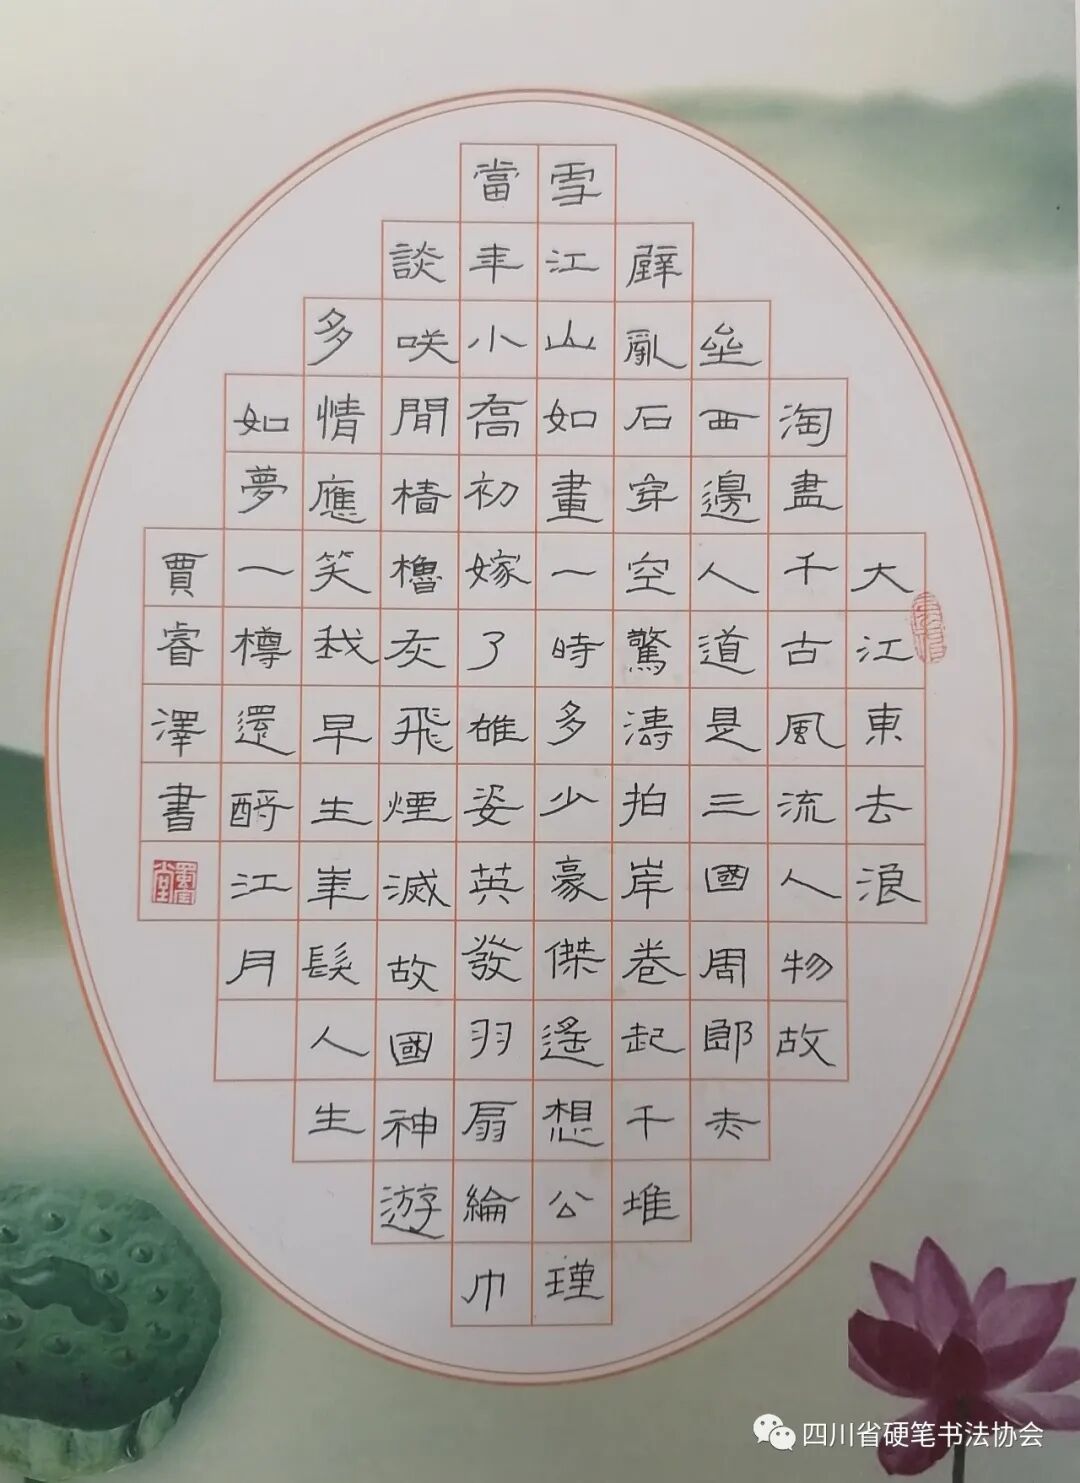 大江東去浪
淘盡千古風流人物故
壘西邊人道是三國周郎赤
壁亂石穿空驚濤拍岸卷起千堆
雪江山如畫一時多少豪傑遙想公瑾
當年小喬初嫁了雄姿英發羽扇綸巾
談咲間檣櫓灰飛煙滅故國神遊
多情應笑我早生華髮人生
如夢一樽還酹江月
賈睿澤書
四川省硬笔书法协会